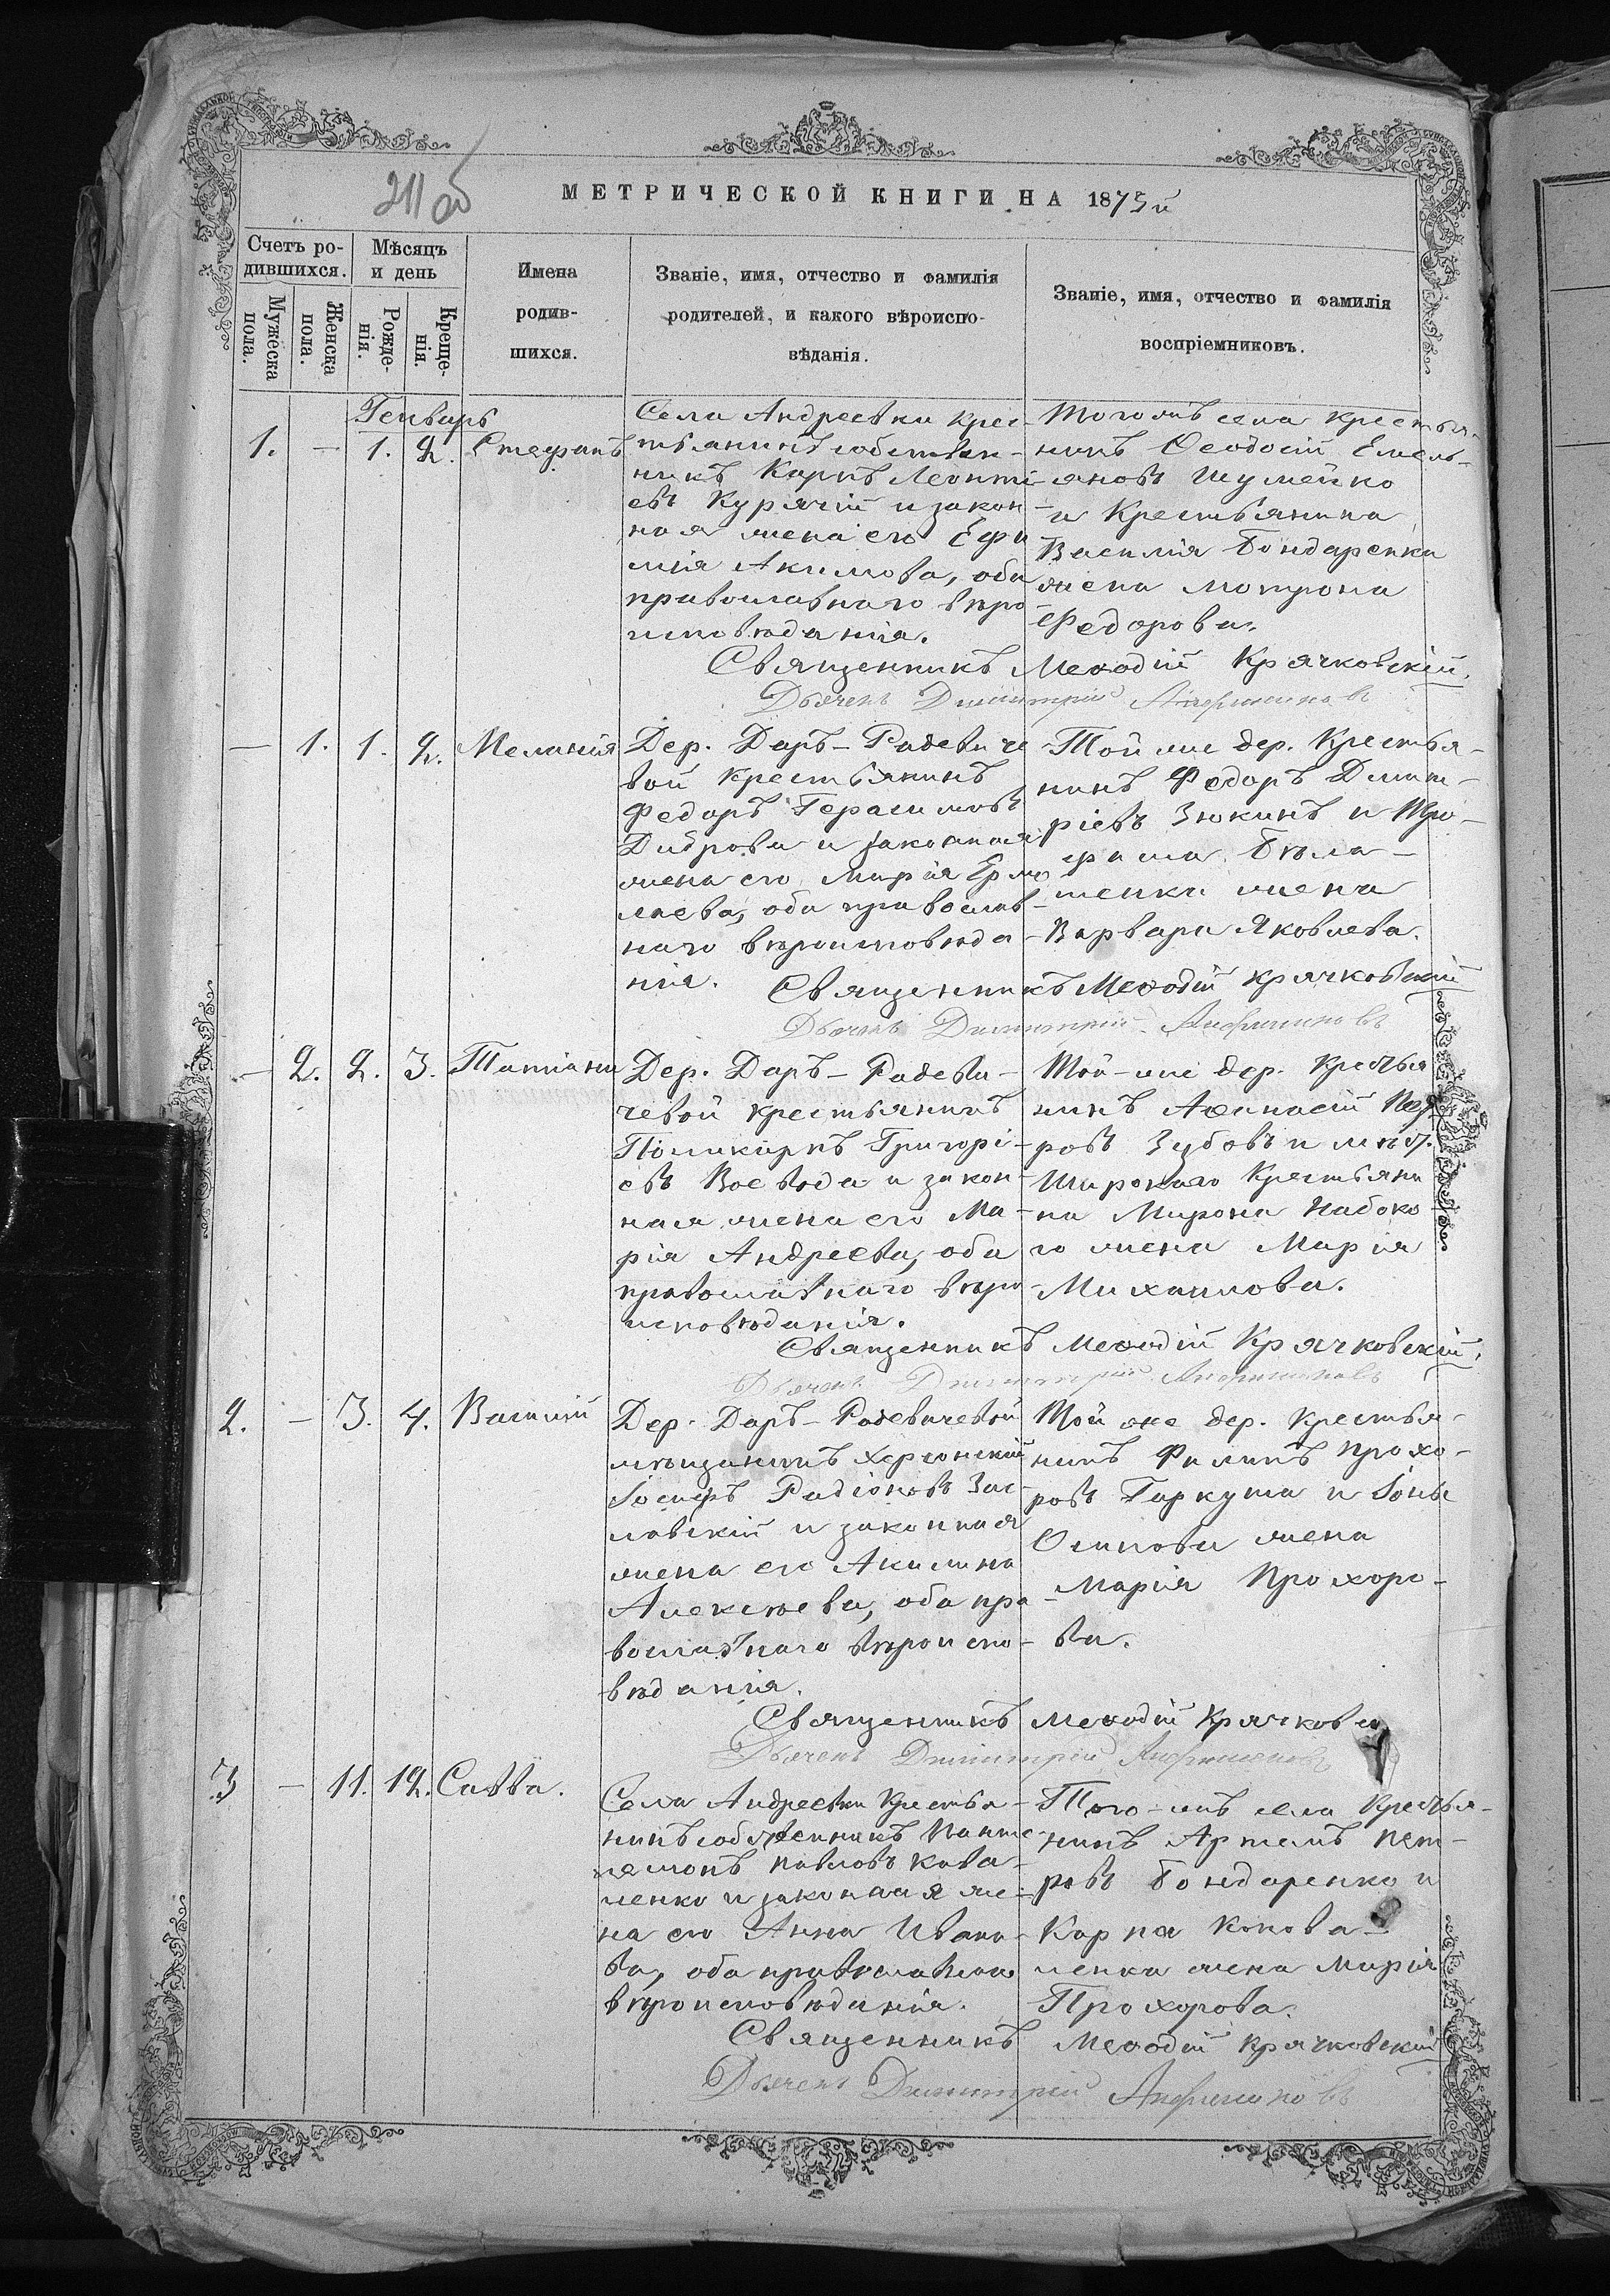 211 об
МЕТРИЧЕСКОЙ КНИГИ НА 1875й
Счетъ ро-
дившихся.
Мѣсяцъ
и день
Имена
родив-
шихся.
Званіе, имя, отчество и фамилія
родителей, и какого вѣроиспо-
вѣданія.
Званіе, имя, отчество и фамилія
воспріемниковъ.
Мужеска
пола.
Женска
пола.
Рожде-
нія.
Креще-
нія.
Генварь
1. — 1. 2. Стефанъ
Села Андреевки крес-
тьянинъ собствен-
никъ Карпъ Леонті-
евъ Курячій и закон-
ная жена его Ефи
мія Акимова, оба
православнаго вѣро
исповѣданія.
Тогожъ села крестья-
нинъ Ѳеодосій Емель-
яновъ Шумейко
и Крестьянина
Василія Бондаренка
жена Мотрона
Федорова.
Священникъ Меѳодій Крячковскій.
Дьячекъ Димитрій
— 1. 1. 2. Меланія
Дер. Даръ-Радевиче
вой крестьянинъ
Федоръ Герасимовъ
Диброва и законная
жена его Марія Ермо
лаева, оба православ-
наго вѣроисповѣда-
нія.
Той же дер. Крестья-
нинъ Федоръ Димит-
ріевъ Зюкинъ и Тро-
фима Бѣла-
шенка жена
Варвара Яковлева.
Священникъ Меѳодій Крячковскій
Дьячекъ Димитрій
— 2. 2. 3. Татіана
Дер. Даръ-Радеви-
чевой крестьянинъ
Поликарпъ Григорі-
евъ Воевода и закон-
ная жена его Ма-
рія Андреева, оба
православнаго вѣро
исповѣданія.
Той-же дер. Крестья
нинъ Аѳанасій Пет
ровъ Зубовъ и мѣст.
Широкаго Крестьяни
на Мирона Набоко
го жена Марія
Михаилова.
Священникъ Меѳодій Крячковскій.
Дьячекъ Димитрій
2. — 3. 4. Василій
Дер. Даръ-Радевичевой
мѣщанинъ Херсонскій
Іосифъ Радіоновъ Зас-
лавскій и законная
жена его Акилина
Алексѣева, оба пра
вославнаго вѣроиспо-
вѣданія.
Той же дер. Крестья-
нинъ Филипъ Прохо-
ровъ Гаркуша и Іоны
Осипова жена
Марія Прохоро-
ва.
Священникъ Меѳодій Крячковс
Дьячекъ Димитрій
3 — 11. 12. Савва.
Села Андреевки Крестья-
нинъ собственникъ Панте
лемонъ Павловъ Кова-
ленко и законная же-
на его Анна Ивано-
ва, оба православнаго
вѣроисповѣданія.
Того-жъ села Крестья-
нинъ Артемъ Пет-
ровъ Бондаренко и
Карпа Конова-
ленка жена Марія
Прохорова.
Священникъ Меѳодій Крячковскій
Дьячекъ Димитрій